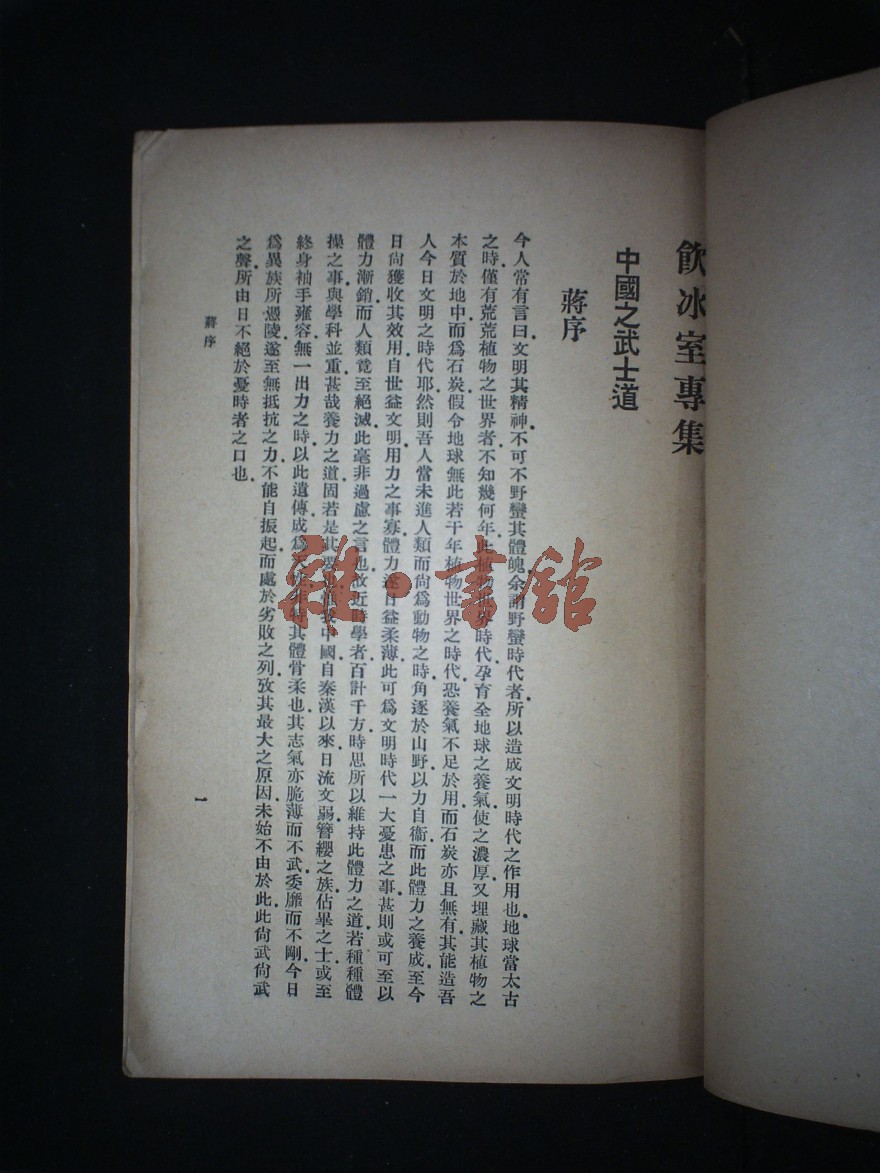 飲冰室專集
中國之武士道
蔣序
今人常有言曰文明其精神不可不野蠻其體魄余謂野蠻時代者所以造成文明時代之作用也地球當太古
之時僅有荒荒植物之世界者不知幾何年此植物世界時代孕育全地球之養氣使之濃厚又埋藏其植物之
本質於地中而爲石炭假令地球無此若干年植物世界之時代恐養氣不足於用而石炭亦且無有其能造吾
人今日文明之時代耶然則吾人當未進人類而尙爲動物之時角逐於山野以力自衞而此體力之養成至今
日尙獲收其效用自世益文明用力之事寡體力遂日益柔薄此可爲文明時代一大憂患之事甚則或可至以
體力漸銷而人類竟至絕滅此毫非過慮之言也故近時學者百計千方時思所以維持此體力之道若種種體
操之事與學科並重甚哉養力之道固若是其要也 中國自秦漢以來日流文弱簪纓之族佔畢之士或至
終身袖手雍容無一出力之時以此遺傳成爲 其體骨柔也其志氣亦脆薄而不武委靡而不剛今日
爲異族所憑陵遂至無抵抗之力不能自振起而處於劣敗之列攷其最大之原因未始不由於此此尙武尙武
之聲所由日不絕於憂時者之口也
蔣序
一
雜·書館